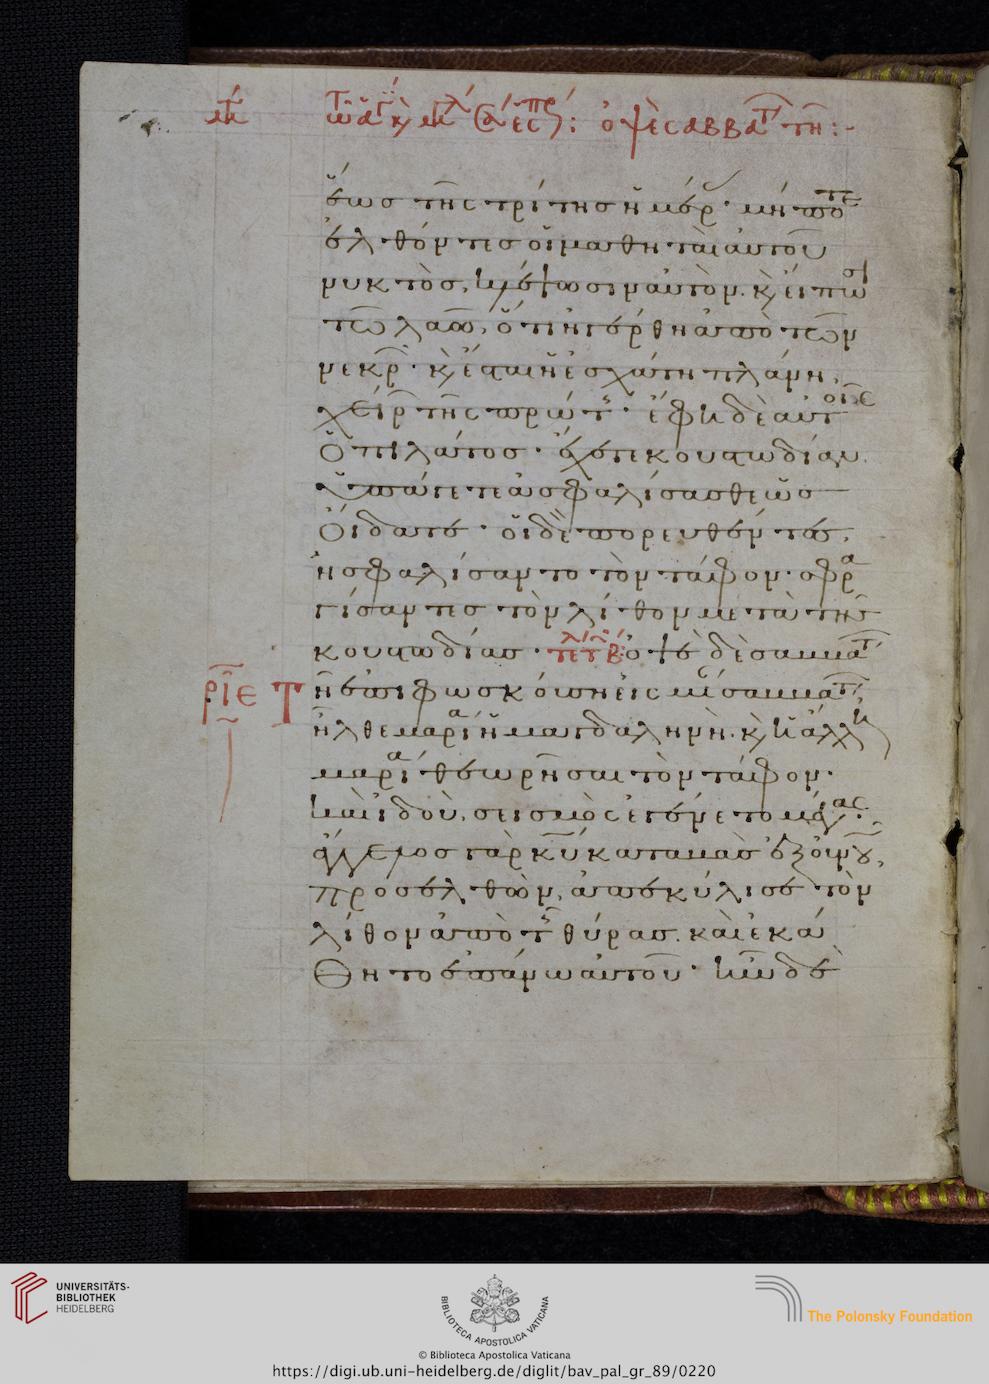 ἕως τῆς τρίτης ἡμέρ· μήποτε
ἐλθόντες οἱ μαθηταὶ αὐτοῦ
νυκτὸς, κλέψωσιν αὐτὸν. κ εἴπωσι
τῶ λαῶ, ὅτι ἠγέρθη ἀπὸ τῶν
νεκρ· κ ἔσται ἡ ἐσχάτη πλάνη,
χείρ τῆς πρώτ· ἔφη δὲ αὐτοῖς
Ὁ πιλάτος· ἔχετε κουστωδίαν.
ὑπάγετε ἀσφαλίσασθε ὡς
Οἴδατε· οἱ δὲ πορευθέντες,
ἠσφαλίσαντο τὸν τάφον· σφρα
γίσαντες τὸν λίθον μετὰ τῆς
κουστωδίας· ὀψὲ δὲ σαββάτ
Τῆ ἐπιφωσκούση εἰς μίαν σαββάτ,
ρξε
ἦλθε μαρία ἡ μαγδαληνὴ. κ ἡ ἄλλη
μαρία θεωρῆσαι τὸν τάφον·
καὶ ἰδοὺ, σεισμὸς ἐγένετο μέγας·
ἄγγελος γὰρ κυ καταβὰς ἐξ οὐνου,
προσελθὼν, ἀπεκύλισε τὸν
λίθον ἀπὸ τ θύρας. καὶ ἐκά
Θητο ἐπάνω αὐτοῦ· ἦν δὲ
UNIVERSITÄTS-
BIBLIOTHEK
HEIDELBERG
BIBLIOTECA APOSTOLICA VATICANA
The Polonsky Foundation
© Biblioteca Apostolica Vaticana
https://digi.ub.uni-heidelberg.de/diglit/bav_pal_gr_89/0220